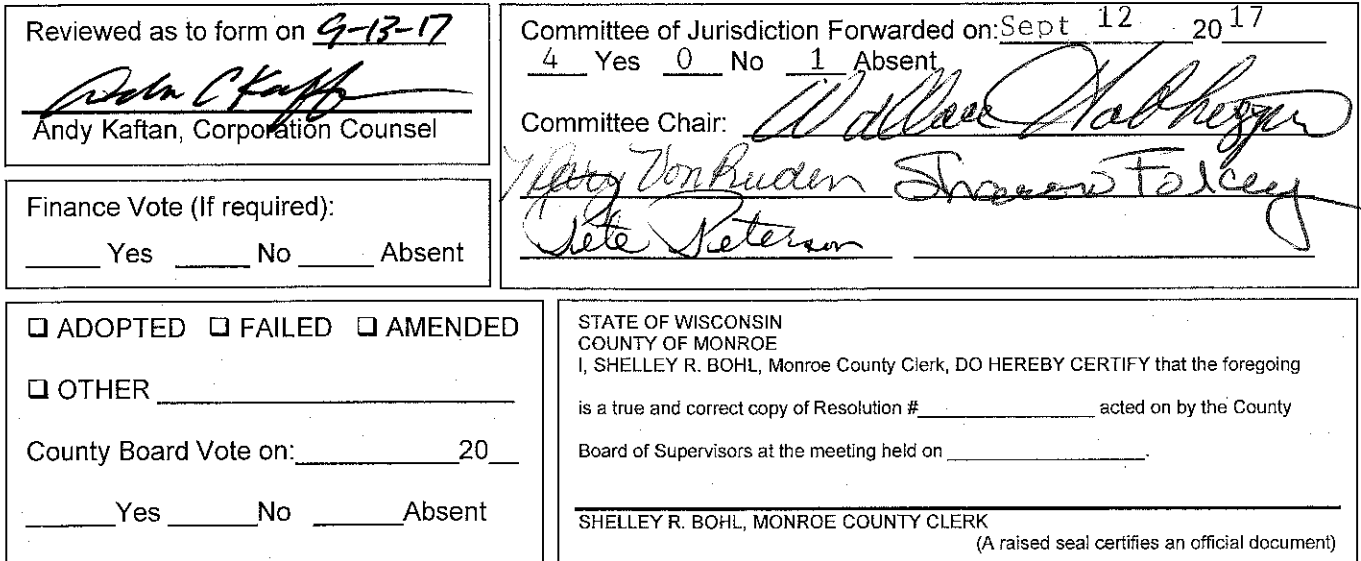 Reviewed as to form on 9-13-17
Andy Kaftan, Corporation Counsel
Finance Vote (If required):
Yes No Absent
Committee of Jurisdiction Forwarded on: Sept 12 2017
4 Yes 0 No 1 Absent
Committee Chair: Wallace Habhegger
Mary VonRuden Sharon Folcey
Pete Peterson
❑ ADOPTED ❑ FAILED ❑ AMENDED
❑ OTHER
County Board Vote on: 20
Yes No Absent
STATE OF WISCONSIN
COUNTY OF MONROE
I, SHELLEY R. BOHL, Monroe County Clerk, DO HEREBY CERTIFY that the foregoing
is a true and correct copy of Resolution # acted on by the County
Board of Supervisors at the meeting held on .
SHELLEY R. BOHL, MONROE COUNTY CLERK
(A raised seal certifies an official document)